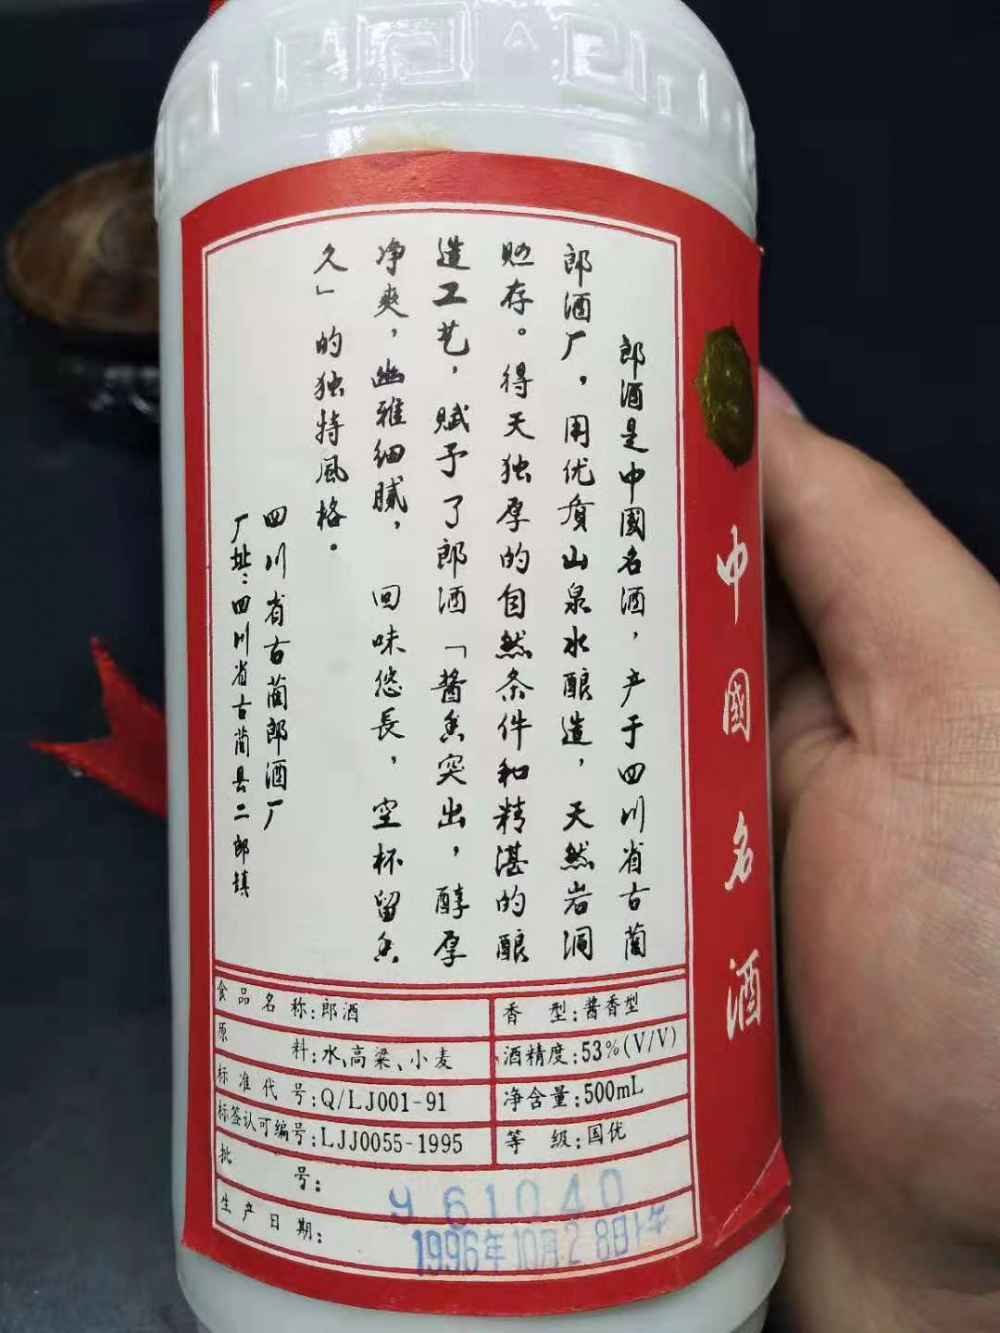 中國名酒
郎酒是中國名酒，产于四川省古蔺
郎酒厂，用优质山泉水酿造，天然岩洞
贮存。得天独厚的自然条件和精湛的酿
造工艺，赋予了郎酒「酱香突出，醇厚
净爽，幽雅细腻，回味悠長，空杯留香
久」的独特風格。
四川省古蔺郎酒厂
厂址：四川省古蔺县二郎镇
食品名称：郎酒
香型：酱香型
原料：水、高粱、小麦
酒精度：53%(V/V)
标准代号：Q/LJ001-91
净含量：500mL
标签认可编号：LJJ0055-1995
等级：国优
批号： 961040
生产日期： 1996年10月28日上午